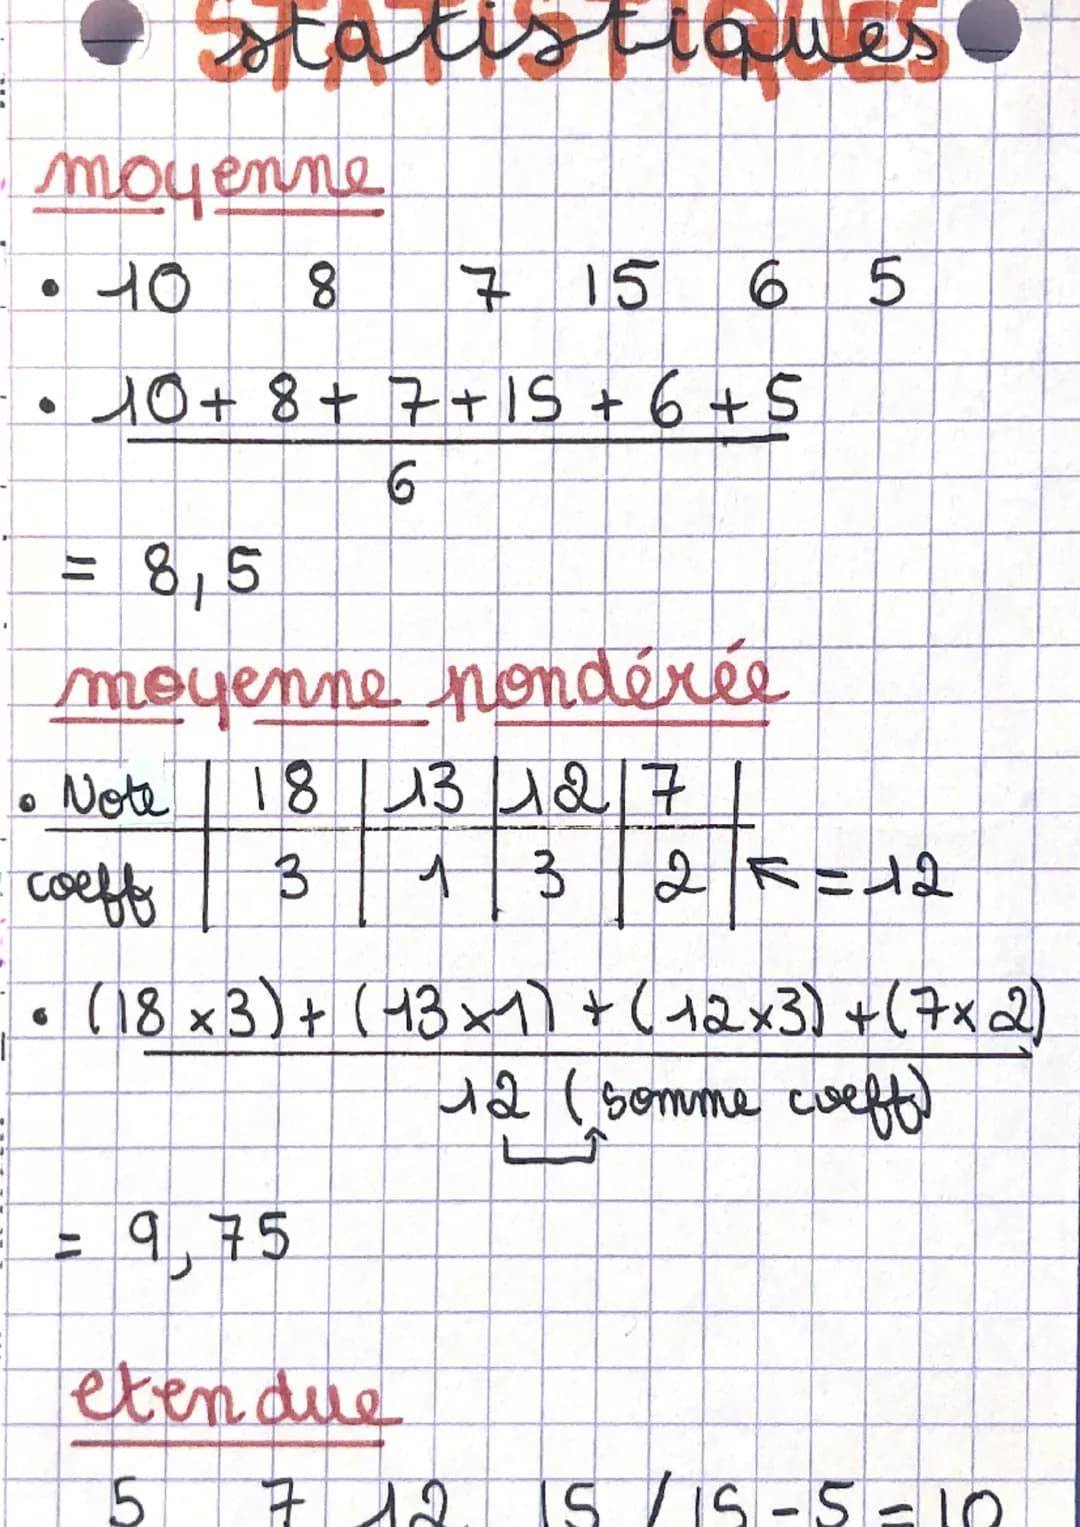 statistiques
moyenne
• 10 8 7 15 6 5
• 10 + 8 + 7 + 15 + 6 + 5
6
= 8,5
moyenne pondérée
• Note | 18 | 13 | 12 | 7 |
coeff | 3 | 1 | 3 | 2 | ↖ = 12
• (18 x 3) + (13 x 1) + (12 x 3) + (7 x 2)
12 (somme coeff)
= 9,75
etendue
5 7 12 15 / 15 - 5 = 10